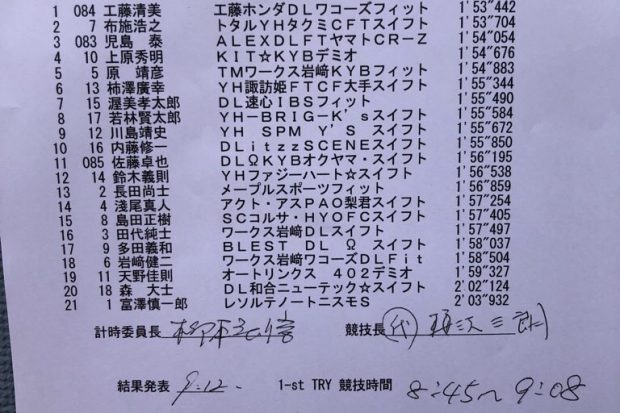 1 084 工藤清美 工藤ホンダＤＬワコーズフィット 1'53"442
2 7 布施浩之 トタルＹＨタクミＣＦＴスイフト 1'53"704
3 083 児島　泰 ＡＬＥＸＤＬＦＴヤマトＣＲ－Ｚ 1'54"054
4 10 上原秀明 ＫＩＴ☆ＫＹＢデミオ 1'54"676
5 5 原　靖彦 ＴＭワークス岩﨑ＫＹＢフィット 1'54"883
6 13 柿澤廣幸 ＹＨ諏訪姫ＦＴＣＦ大手スイフト 1'55"344
7 15 渥美孝太郎 ＤＬ速心ＩＢＳフィット 1'55"490
8 17 若林賢太郎 ＹＨ－ＢＲＩＧ－Ｋ'ｓスイフト 1'55"584
9 12 川島靖史 ＹＨ　ＳＰＭ　Ｙ'Ｓ　スイフト 1'55"672
10 16 内藤修一 ＤＬｉｔｚｚＳＣＥＮＥスイフト 1'55"850
11 085 佐藤卓也 ＤＬΩＫＹＢオクヤマ・スイフト 1'56"195
12 14 鈴木義則 ＹＨファジーハート☆スイフト 1'56"538
13 2 長田尚士 メープルスポーツフィット 1'56"859
14 4 淺尾真人 アクト・アスＰＡＯ梨君スイフト 1'57"254
15 8 島田正樹 ＳＣコルサ・ＨＹＯＦＣスイフト 1'57"405
16 3 田代純士 ワークス岩﨑ＤＬスイフト 1'57"497
17 9 多田義和 ＢＬＥＳＴ　ＤＬ　Ω　スイフト 1'58"037
18 6 岩﨑健二 ワークス岩﨑ワコーズＤＬＦｉｔ 1'58"504
19 11 天野佳則 オートリンクス　４０２デミオ 1'59"327
20 18 森　大士 ＤＬ和合ニューテック☆スイフト 2'02"124
21 1 富澤慎一郎 レソルテノートニスモＳ 2'03"932
計時委員長 競技長 代
結果発表 9:12. 1-st TRY 競技時間 8:45〜9:08